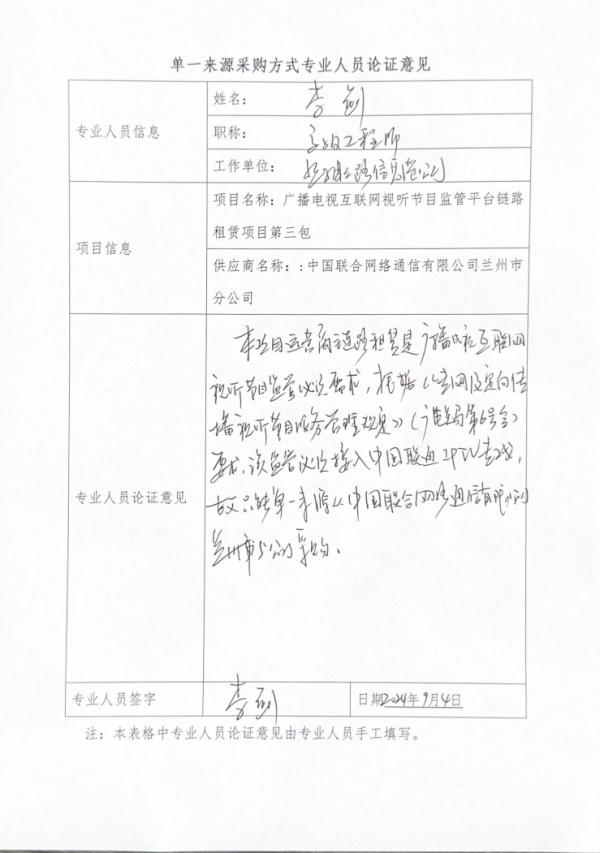 单一来源采购方式专业人员论证意见
专业人员信息
姓名：李剑
职称：高级工程师
工作单位：信息公司
项目信息
项目名称：广播电视互联网视听节目监管平台链路
租赁项目第三包
供应商名称：:中国联合网络通信有限公司兰州市
分公司
专业人员论证意见
本项目运营商链路租赁是广播电视互联网
视听节目监管必须要求，根据《专网及定向传
播视听节目服务管理规定》（广电总局第6号令）
要求，该监管必须接入中国联通IPTV专线，
故只能单一来源从中国联合网络通信有限公司
兰州市分公司采购。
专业人员签字
李剑
日期2024年9月4日
注：本表格中专业人员论证意见由专业人员手工填写。